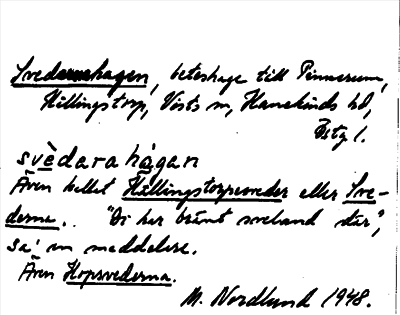 Svedarnahagen, beteshage till Pinnarum,
Hällingstorp, Vists sn, Hanekinds hd,
Östg l.
svèdarahágan
Även kallat Hällingstorpsvedar eller Sve-
derna. "Di har bränt sveland där",
sa' en meddelare.
Även Hopsvederna.
M. Nordlund 1948.